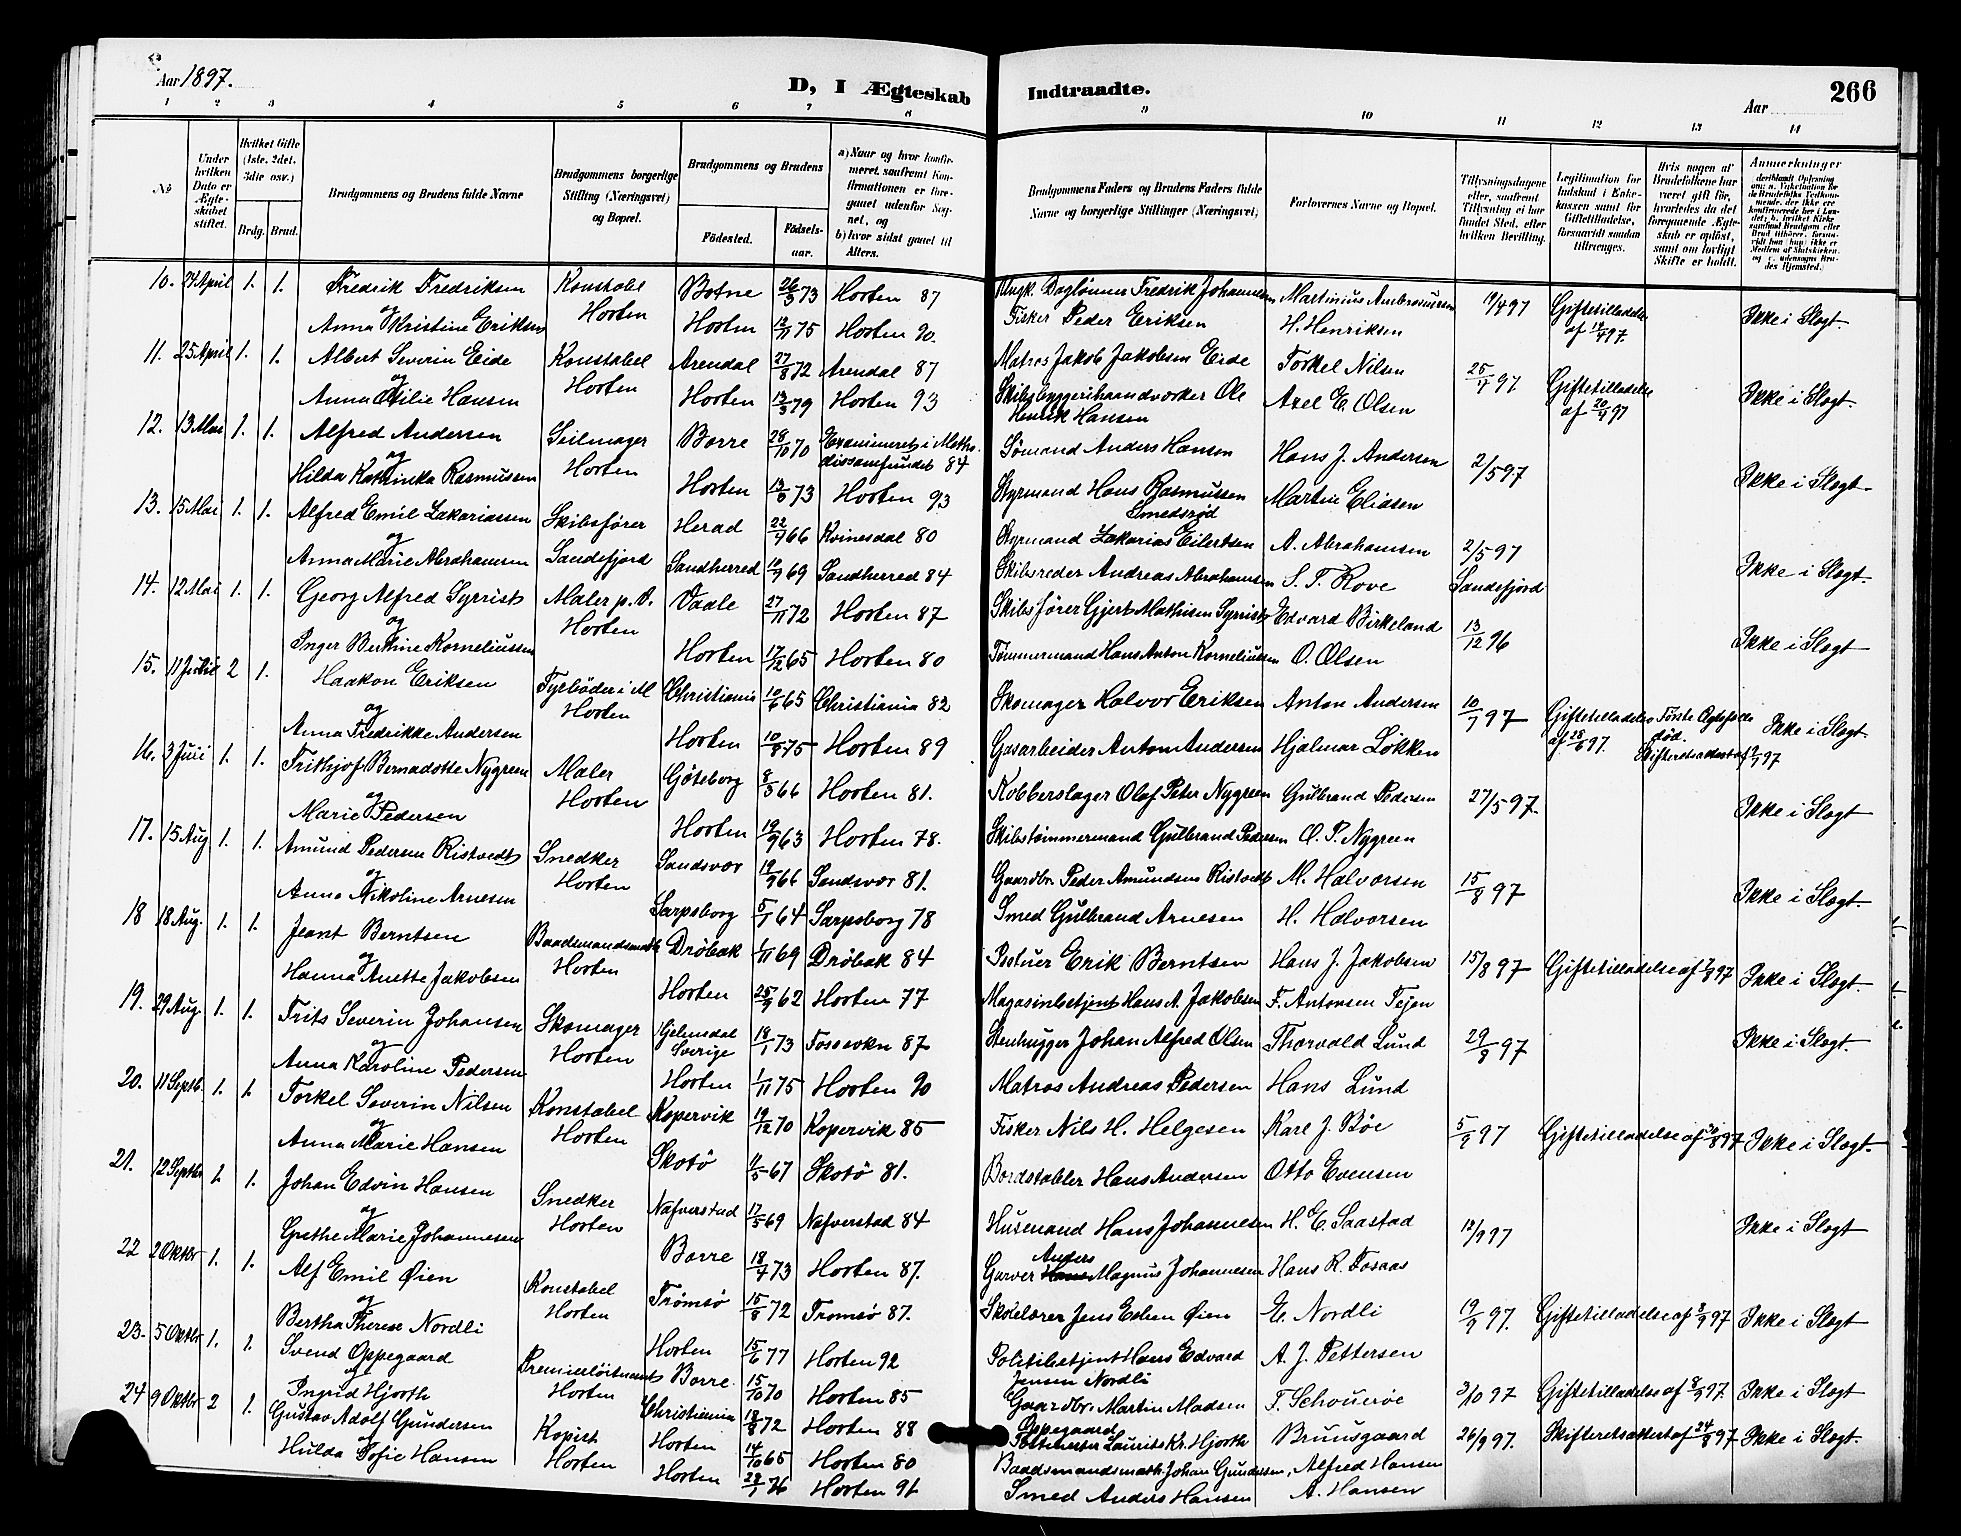 Aar 1897.
D, I Ægteskab Indtraadte.
Aar
266
1 2 3 4 5 6 7 8 9 10 11 12 13 14
No
Under hvilken Dato er Ægteskabet stiftet.
Hvilket Gifte (1ste, 2det, 3die osv.)
Brdg. Brud.
Brudgommens og Brudens fulde Navne
Brudgommens borgerlige Stilling (Næringsvei) og Bopæl.
Brudgommens og Brudens
Födested. Födselsaar.
a) Naar og hvor konfirmeret, saafremt Konfirmationen er foregaaet udenfor Sognet, og
b) hvor sidst gaaet til Alters.
Brudgommens Faders og Brudens Faders fulde Navne og borgerlige Stillinger (Næringsvei)
Forlovernes Navne og Bopæl.
Tillysningsdagene eller, saafremt Tillysning ei har fundet Sted, efter hvilken Bevilling.
Legitimation for Indskud i Enkekassen samt for Giftetilladelse, forsaavidt saadan tiltrænges.
Hvis nogen af Brudefolkene har været gift før, hvorledes da det foregaaende Ægteskab er opløst, samt om lovligt Skifte er holdt.
Anmærkninger
10. 24 April 1. 1. Fredrik Fredriksen Konstabel Botne 26/3 73 Horten 87 Ungk. Daglønner Fredrik Johannesen Martinius Ambrosiussen 19/4 97 Giftetilladelse Ikke i Slægt.
og Horten af 12/4 97.
Anna Kristine Eriksen Horten 12/11 75 Horten 90. Fisker Peder Eriksen H. Henriksen
11. 25 April 1. 1. Albert Severin Eide Konstabel Arendal 27/8 72 Arendal 87 Matros Jakob Jakobsen Eide Torkel Nilsen 25/4 97 Giftetilladelse Ikke i Slægt.
og Horten af 20/4 97
Anna Otilie Hansen Horten 13/3 79 Horten 93 Skibsbyggerihaandværker Ole Axel E. Olsen
Henrik Hansen
12. 13 Mai 1. 1. Alfred Andersen Seilmager Borre 28/10 70 Examineret i Methodissamfundet 84 Sømand Anders Hansen Hans J. Andersen 2/5 97 Ikke i Slægt.
og Horten
Hilda Kathinka Rasmussen Horten 13/6 73 Horten 93 Styrmand Hans Rasmussen Martin Eliasen
Smedsrød
13. 15 Mai 1. 1. Alfred Emil Zakariassen Skibsfører Herad 22/7 66 Kvinesdal 80 Styrmand Zakarias Eilertsen A. Abrahamsen 2/5 97 Ikke i Slægt.
og Sandefjord
Anna Marie Abrahamsen Sandherred 10/9 69 Sandherred 84 Skibsreder Andreas Abrahamsen S. T. Rove Sandefjord
14. 12 Mai 1. 1. Georg Alfred Syrrist Maler p. V. Vaale 27/11 72 Horten 87 Skibsfører Gjert Mathisen Syrrist Edvard Birkeland 13/12 96 Ikke i Slægt
og Horten
Inger Berthine Korneliussen Horten 17/12 65 Horten 80 Tømmermand Hans Anton Korneliussen O. Olsen
15. 11 Juli 2 1. Haakon Eriksen Fyrbøder i M Christiania 10/6 65 Christiania 82 Skomager Halvor Eriksen Anton Andersen 10/7 97 Giftetilladelse af 25/6 97. Første Ægtefælle død. Skifteretsattest af 9/7 97 Ikke i Slægt
og Horten
Anna Fredrikke Andersen Horten 10/8 75 Horten 89 Gasarbeider Anton Andersen Hjalmar Løkken
16. 3 Juli 1. 1. Frithjof Bernadotte Nygreen Maler Göteborg 8/5 66 Horten 81. Kobberslager Olaf Peter Nygreen Gulbrand Pedersen 27/5 97. Ikke i Slægt
og Horten
Marie Pedersen Horten 19/9 63 Horten 78. Skibstømmermand Gulbrand Pedersen O. P. Nygreen
17. 15 Aug 1. 1. Amund Pedersen Ristvedt Snedker Sandsvær 19/9 66 Sandsvær 81. Gaardbr. Peder Amundsen Ristvedt M. Halvorsen 15/8 97 Ikke i Slægt.
og Horten
Anna Nikoline Arnesen Sarpsborg 5/7 64 Sarpsborg 78 Smed Gulbrand Arnesen H. Halvorsen
18 18 Aug. 1. 1. Jeant Berntsen Baadsmandsmath Drøbak 1/11 69 Drøbak 84 Erik Berntsen Hans J. Jakobsen 15/8 97 Giftetilladelse af 97 Ikke i Slægt.
og Horten
Hanna Anette Jakobsen Horten 25/9 62 Horten 77 Magasinbetjent Hans A. Jakobsen F. Antonsen Tejn
19. 29 Aug. 1. 1. Frits Severin Johansen Skomager Sverige 18/1 73 Fossesokn 87 Stenhugger Johan Alfred Olsen Thorvald Lund 29/8 97 Ikke i Slægt.
og Horten
Anna Karoline Pedersen Horten 1/11 75 Horten 90 Matros Andreas Pedersen Hans Lund
20. 11 Septb. 1. 1. Torkel Severin Nilsen Konstabel Kopervik 19/12 70 Kopervik 85 Fisker Nils H. Helgesen Karl J. Bøe 5/9 97 Giftetilladelse af 97 Ikke i Slægt.
og Horten
Anna Marie Hansen Skotø 11/5 67 Skotø 81. Bordstabler Hans Andersen Otto Evensen
21. 12 Septbr 1. 1. Johan Edvin Hansen Snedker Nafverstad 17/5 69 Nafverstad 84 Husmand Hans Johannesen H. E. Saastad 12/9 97 Ikke i Slægt
og Horten
Grethe Marie Johannesen Borre 18/4 73 Horten 87. Garver Anders Magnus Johannesen Hans R. Fosaas
22 2 Oktbr 1. 1. Alf Emil Øien Konstabel Tromsø 15/8 72 Tromsø 87. Skolelærer Jens Esben Øien E. Nordli 19/9 97. Giftetilladelse af 8/9 97 Ikke i Slægt
og Horten
Bertha Therese Nordli Horten 15/6 77 Horten 92 Politibetjent Hans Edvard A. J. Pettersen
Jensen Nordli
23. 5 Oktbr 1. 1. Svend Oppegaard Premierløitnant Borre. 15/10 70 Horten 85 Gaardbr. Martin Madsen F. Schouerøe 3/10 97 Giftetilladelse af 8/9 97. Ikke i Slægt
og Horten Oppegaard
Ingrid Hjorth Christiania 18/8 72 Horten 88 Postmester Laurits Kr. Hjorth Bruusgaard
24 9 Oktbr 2 1. Gustav Adolf Gundersen Kopist Horten 14/10 65 Horten 80 Baadsmandsmath. Johan Gundersen, Alfred Hansen 26/9 97. Skifteretsattest af 24/8 97 Ikke i Slægt.
og Horten
Hulda Sofie Hansen Horten 22/1 76 Horten 91 Smed Anders Hansen A. Hansen